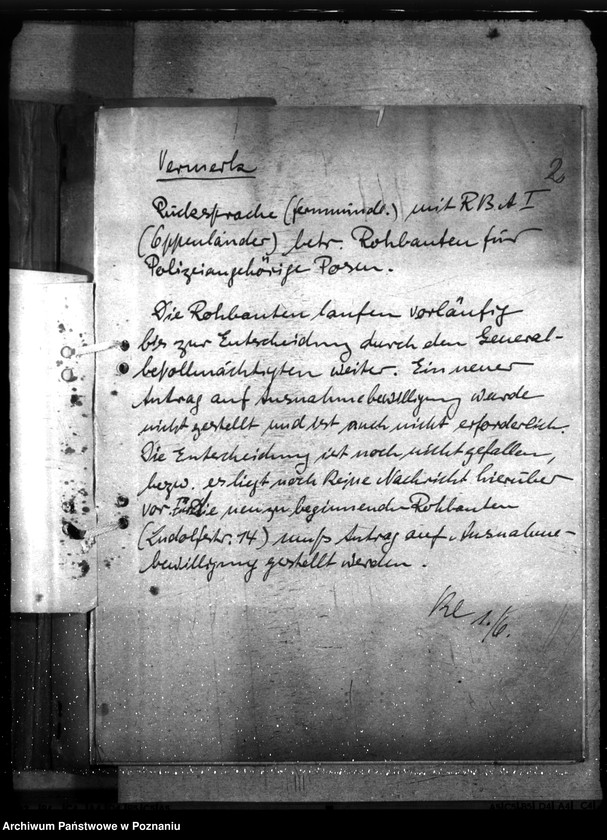 Vermerk
2
Rücksprache (fernmündl.) mit RBA I
(Oppenländer) betr. Rohbauten für
Polizeiangehörige Posen.
Die Rohbauten laufen vorläufig
bis zur Entscheidung durch den General-
bevollmächtigten weiter. Ein neuer
Antrag auf Ausnahmebewilligung wurde
nicht gestellt und ist auch nicht erforderlich.
Die Entscheidung ist noch nicht gefallen,
bezw. es liegt noch keine Nachricht hierüber
vor. Für die neu zu beginnenden Rohbauten
(Ludolfstr. 14) muß Antrag auf Ausnahme-
bewilligung gestellt werden.
1./6.
Archiwum Państwowe w Poznaniu